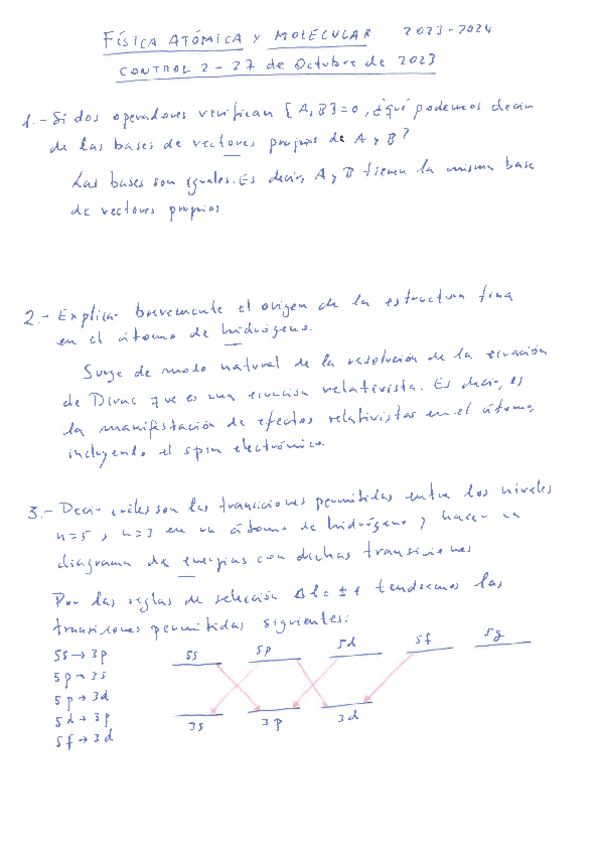 FÍSICA ATÓMICA Y MOLECULAR 2023-2024
CONTROL 2 - 27 de Octubre de 2023
1.- Si dos operadores verifican [A,B]=0, ¿qué podemos decir
de las bases de vectores propios de A y B?
Las bases son iguales. Es decir, A y B tienen la misma base
de vectores propios
2.- Explicar brevemente el origen de la estructura fina
en el átomo de hidrógeno.
Surge de modo natural de la resolución de la ecuación
de Dirac que es una ecuación relativista. Es decir, es
la manifestación de efectos relativistas en el átomo,
incluyendo el spin electrónico.
3.- Decir cuáles son las transiciones permitidas entre los niveles
n=5 y n=3 en un átomo de hidrógeno y hacer un
diagrama de energías con dichas transiciones
Por las reglas de selección Δl = ±1 tendremos las
transiciones permitidas siguientes:
5s→3p
5p→3s
5p→3d
5d→3p
5f→3d
5s 5p 5d 5f 5g
3s 3p 3d